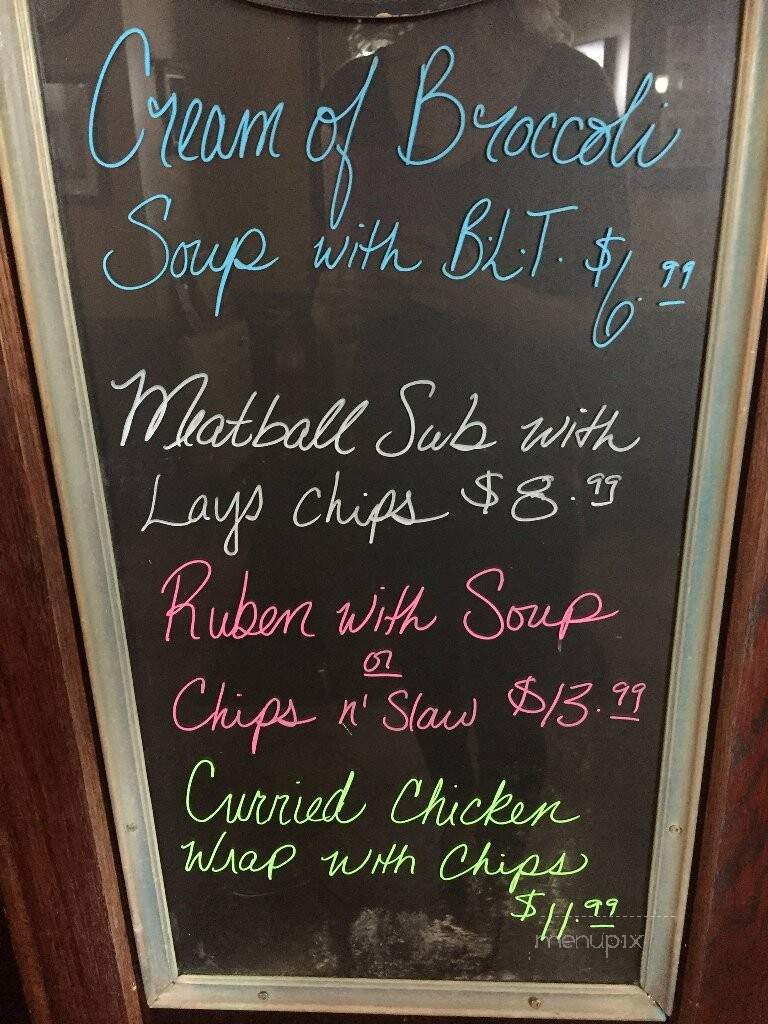 Cream of Broccoli
Soup with B.L.T. $6.99
Meatball Sub with
Lays chips $8.99
Ruben with Soup
or
Chips n' Slaw $13.99
Curried Chicken
Wrap with Chips
$11.99
menupix